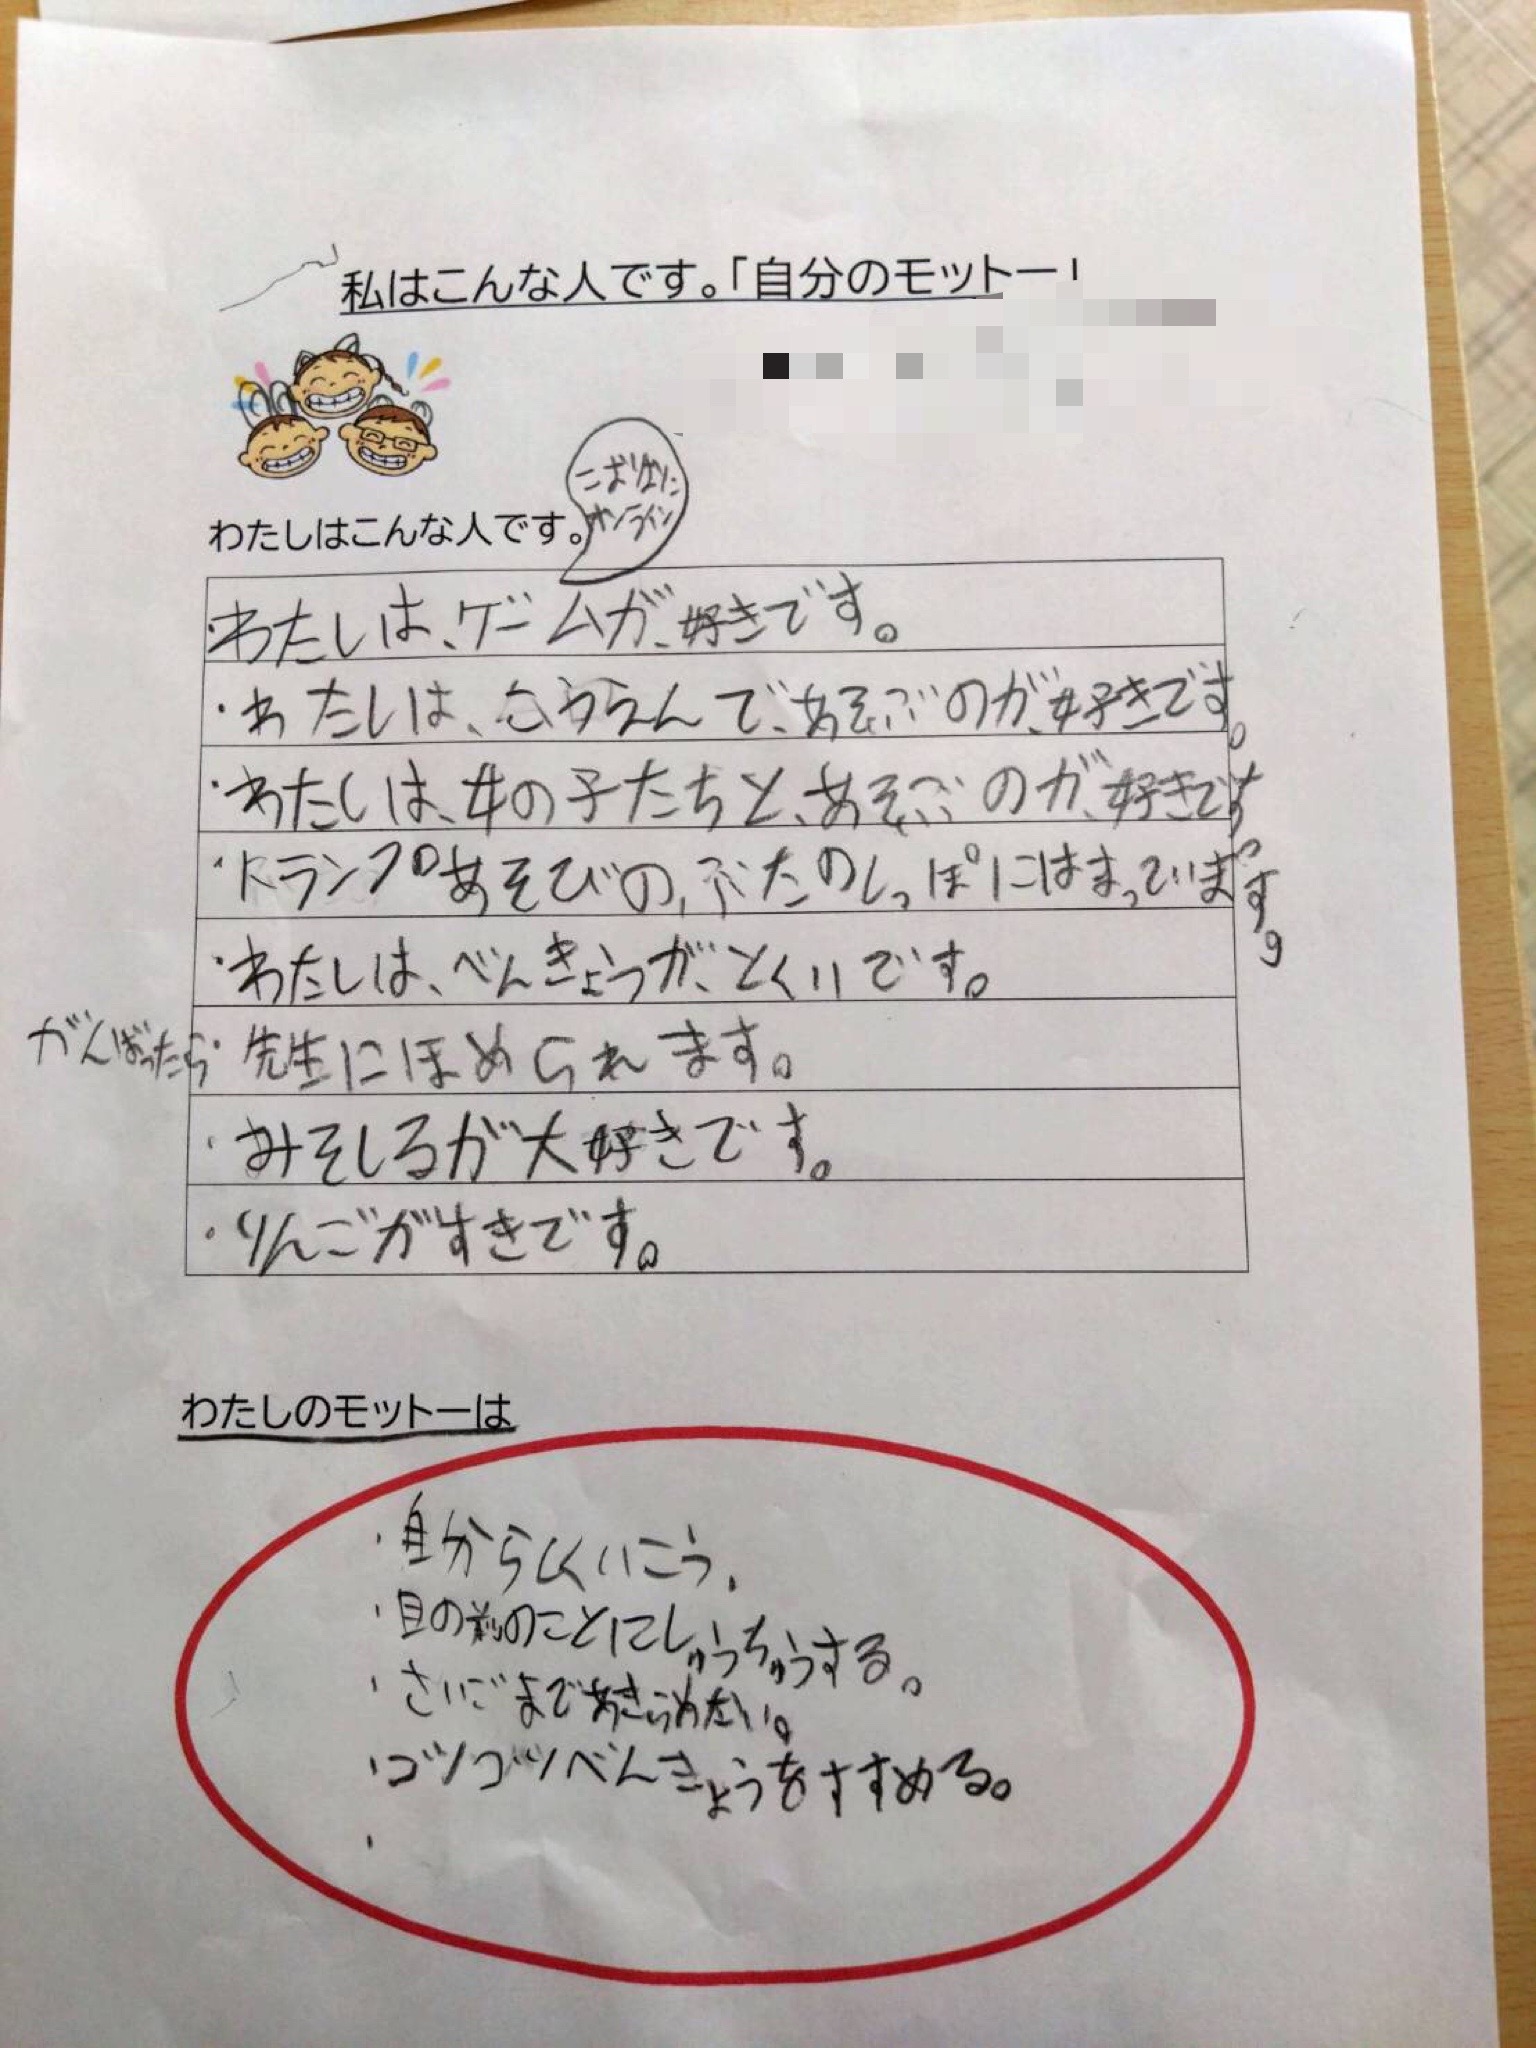 私はこんな人です。「自分のモットー
オンライン
わたしはこんな人です。
・わたしは、ゲームが、好きです。
・わたしは、こうえんで、あそぶのが、好きです。
・わたしは、女の子たちと、あそぶのが、好きです。
・トランプあそびの、ぶたのしっぽにはまっています。
・わたしは、べんきょうが、とくいです。
がんばったら・先生にほめられます。
・みそしるが大好きです。
・りんごがすきです。
わたしのモットーは
・自分らしくいこう.
・目の前のことにしゅうちゅうする。
・さいごまであきらめない。
・コツコツべんきょうをすすめる。
・